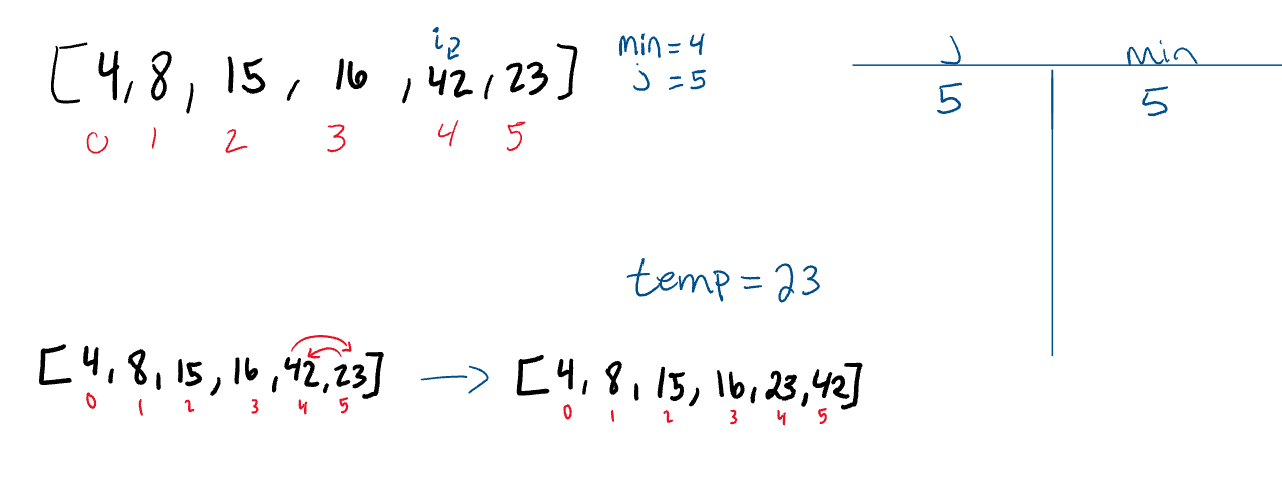 i
[4, 8, 15, 16, 42, 23]
0 1 2 3 4 5
min = 4
j = 5
j min
5 5
temp = 23
[4, 8, 15, 16, 42, 23] → [4, 8, 15, 16, 23, 42]
0 1 2 3 4 5 0 1 2 3 4 5